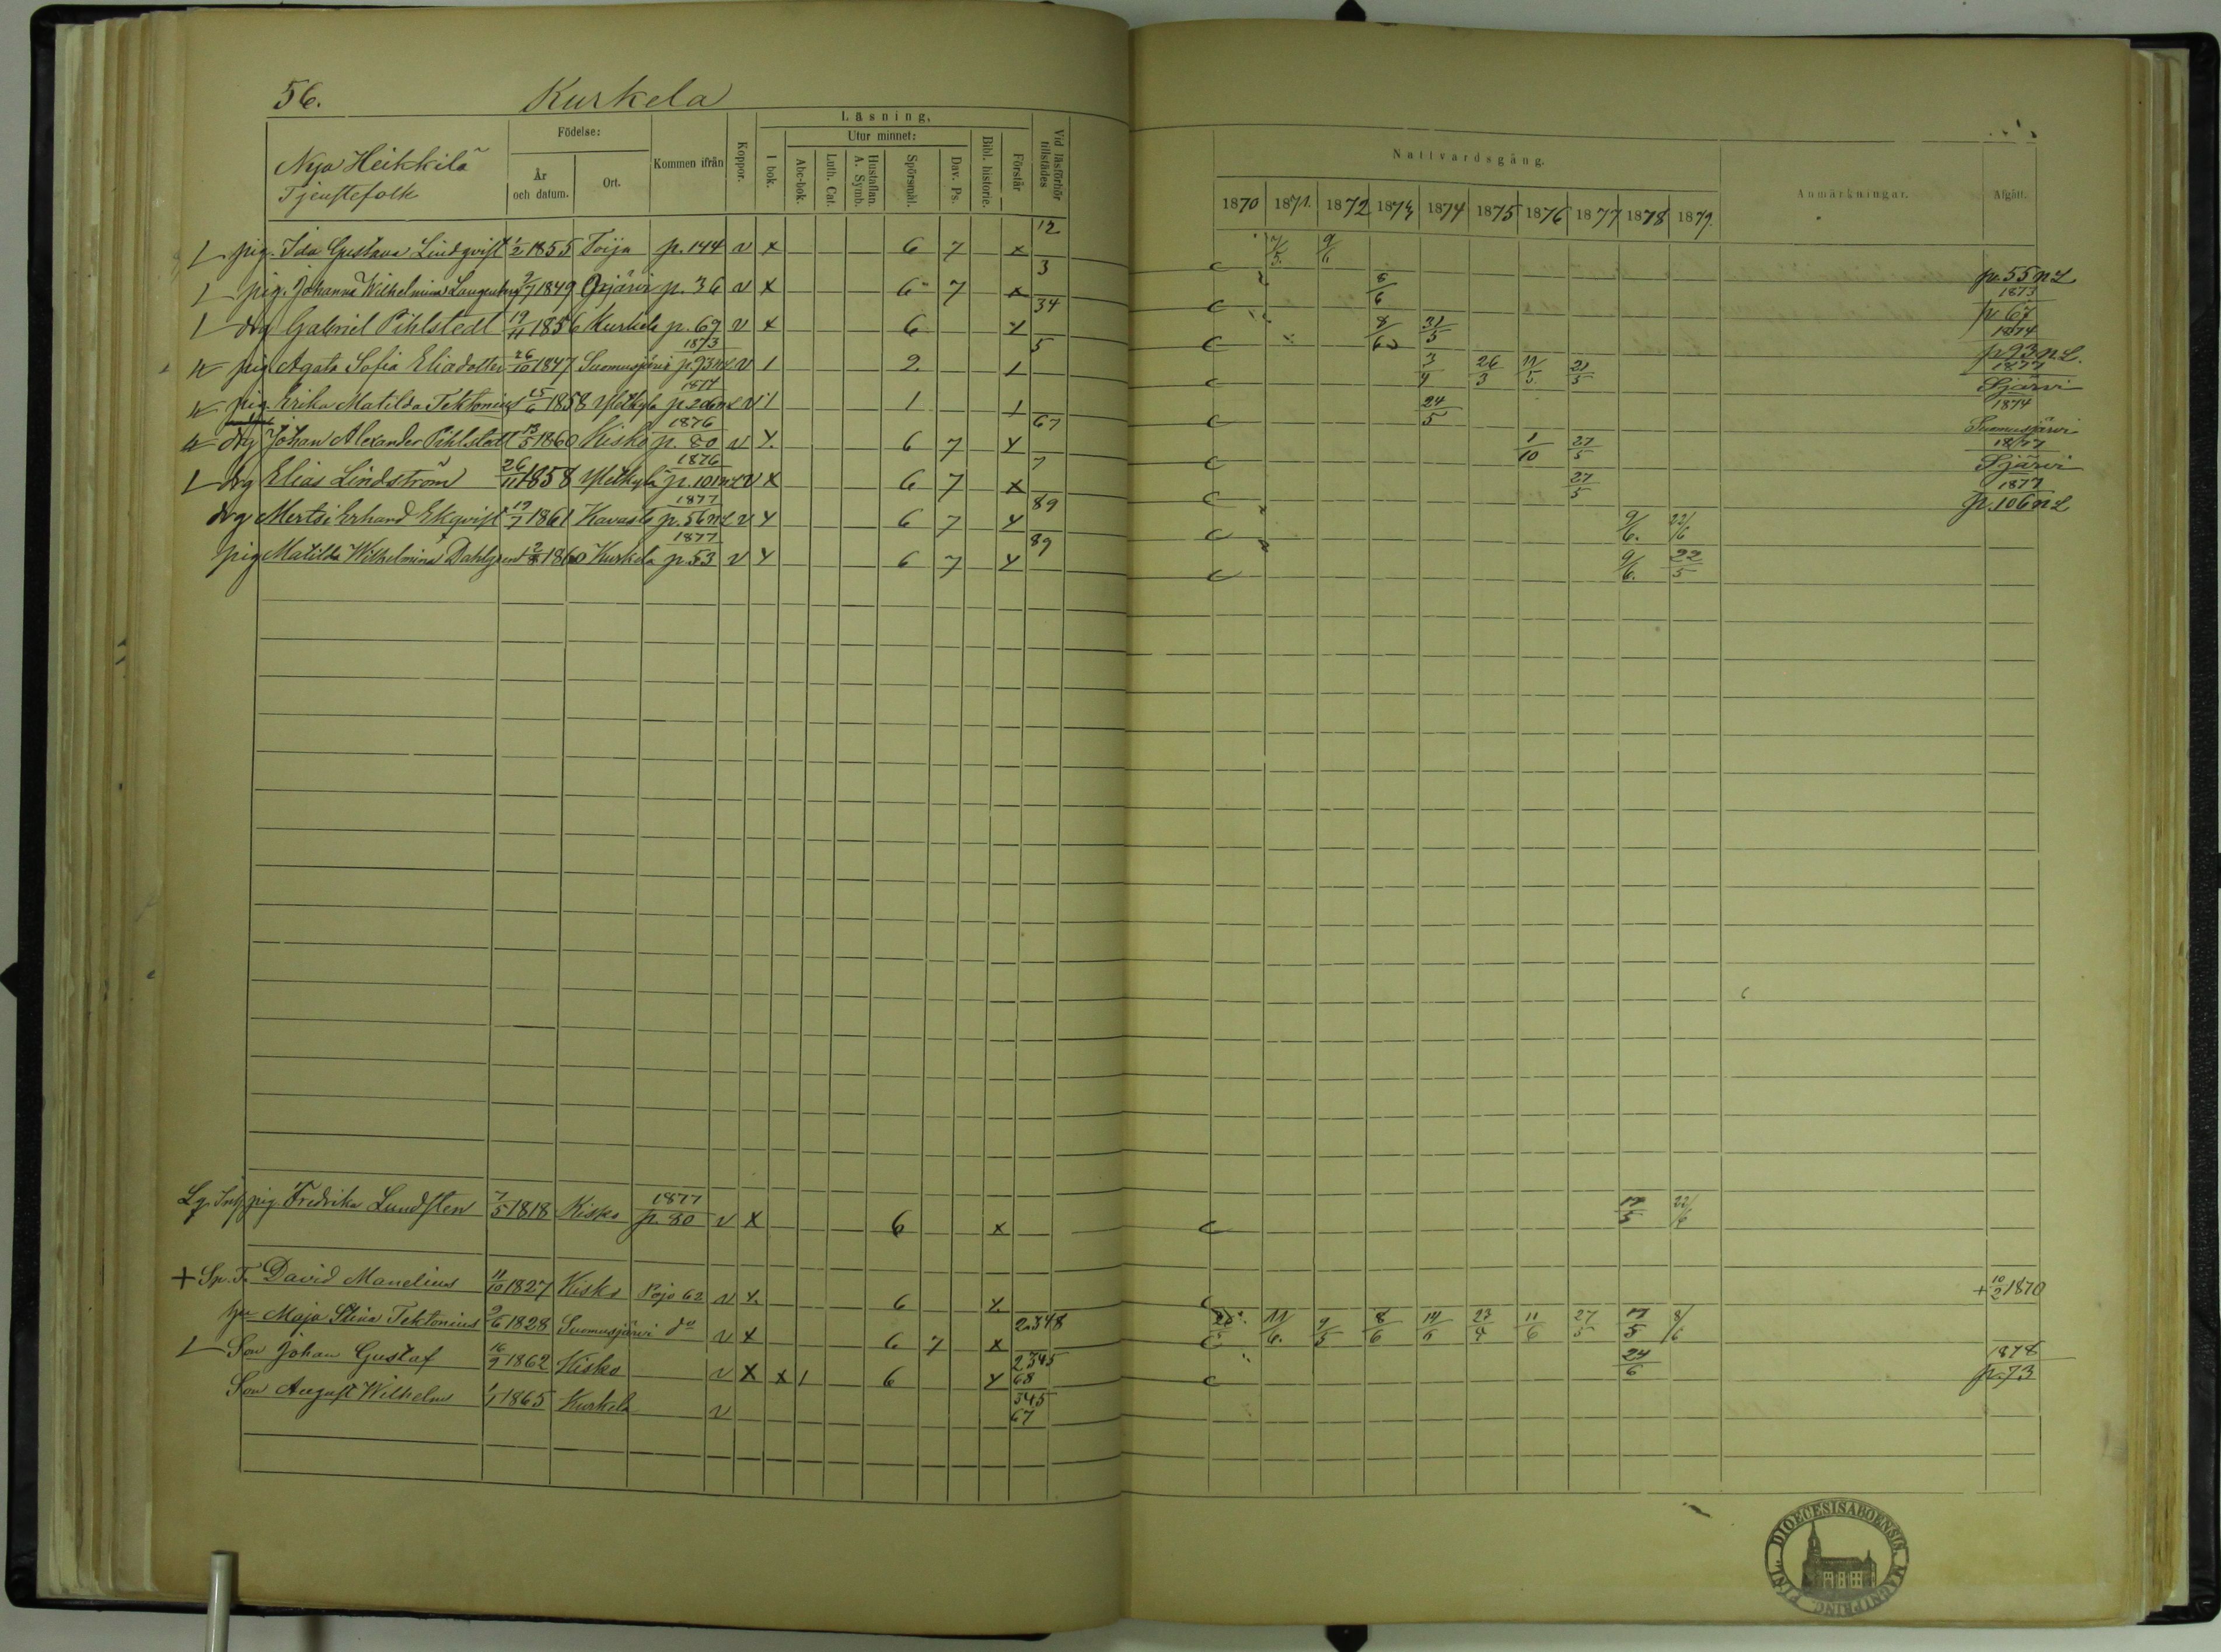 56. Kurkela
Nya Heikkilä
Tjenstefolk
Födelse:
År och datum.
Ort.
Kommen ifrån
Koppor.
Läsning,
I bok.
Utur minnet:
Abc-bok.
Luth. Cat.
Hustaflan. A. Symb.
Spörsmål.
Dav. Ps.
Bibl. historie.
Förstår
Vid läsförhör tillstädes
Nattvardsgång.
1870 1871. 1872 1873 1874 1875 1876 1877 1878 1879.
Anmärkningar.
Afgått.
pig. Ida Gustava Lindqvist 1/2 1855 Toija p. 144 v x 6 7 x 12 7/5. 9/6 p. 55 n L
pig. Johanna Wilhelmina 2/7 1849 p. 36 v x 6 7 x 3 8/6 1873 p. 67
drg Gabriel Pihlstedt 19/11 1856 Kurkela p. 69 v x 6 x 34 8/6 31/5 1874 p. 93 n L.
pig Agata Sofia Eliadotter 26/10 1847 Suomusjärvi 1873 p. 93 n L v 1 2. 1 5 3/4 26/3 11/5. 21/5 1877 Sjärvi
pig. Erika Matilda Tektonius 25/6 1858 1874 p. 206 n L v 1 1 1 24/5 1874 Suomusjärvi
drg Johan Alexander Pihlstedt 13/5 1860 Kisko 1876 p. 80 v x. 6 7 x 67 1/10 27/5 1877 Sjärvi
drg Elias Lindström 26/11 1858 1876 p. 101 n L v x 6 7 x 7 27/5 1877 p. 106 n L
drg Mertsi Erhard Ekqvist 19/7 1861 Kavasto 1877 p. 56 n L v x 6 7 x 89 9/6. 22/6
pig Matilda Wilhelmina Dahlgren 1860 Kurkela 1877 p. 53 v x 6 7 x 89 9/6. 22/5
pig. Fredrika Lundsten 7/5 1818 Kisko 1877 p. 80 v x 6 x 17/5 22/6
+ Sp. T. David Manelius 11/10 1827 Kisko Pojo 62 v x. 6 x + 10/2 1870
Maja Stina Tektonius 9/6 1828 Suomusjärvi do v x 6 7 x 2348 11/6. 9/5 8/6 14/5 23/4 11/6 27/5 17/5 8/6
Son Johan Gustaf 16/9 1862 Kisko v x x 1 6 x 2345 68 24/6 1878 p. 73
Son August Wilhelm 1/1 1865 Kurkela v 345 67
DIOECESIS ABOENSIS. MAGNI PRINC. FINL.